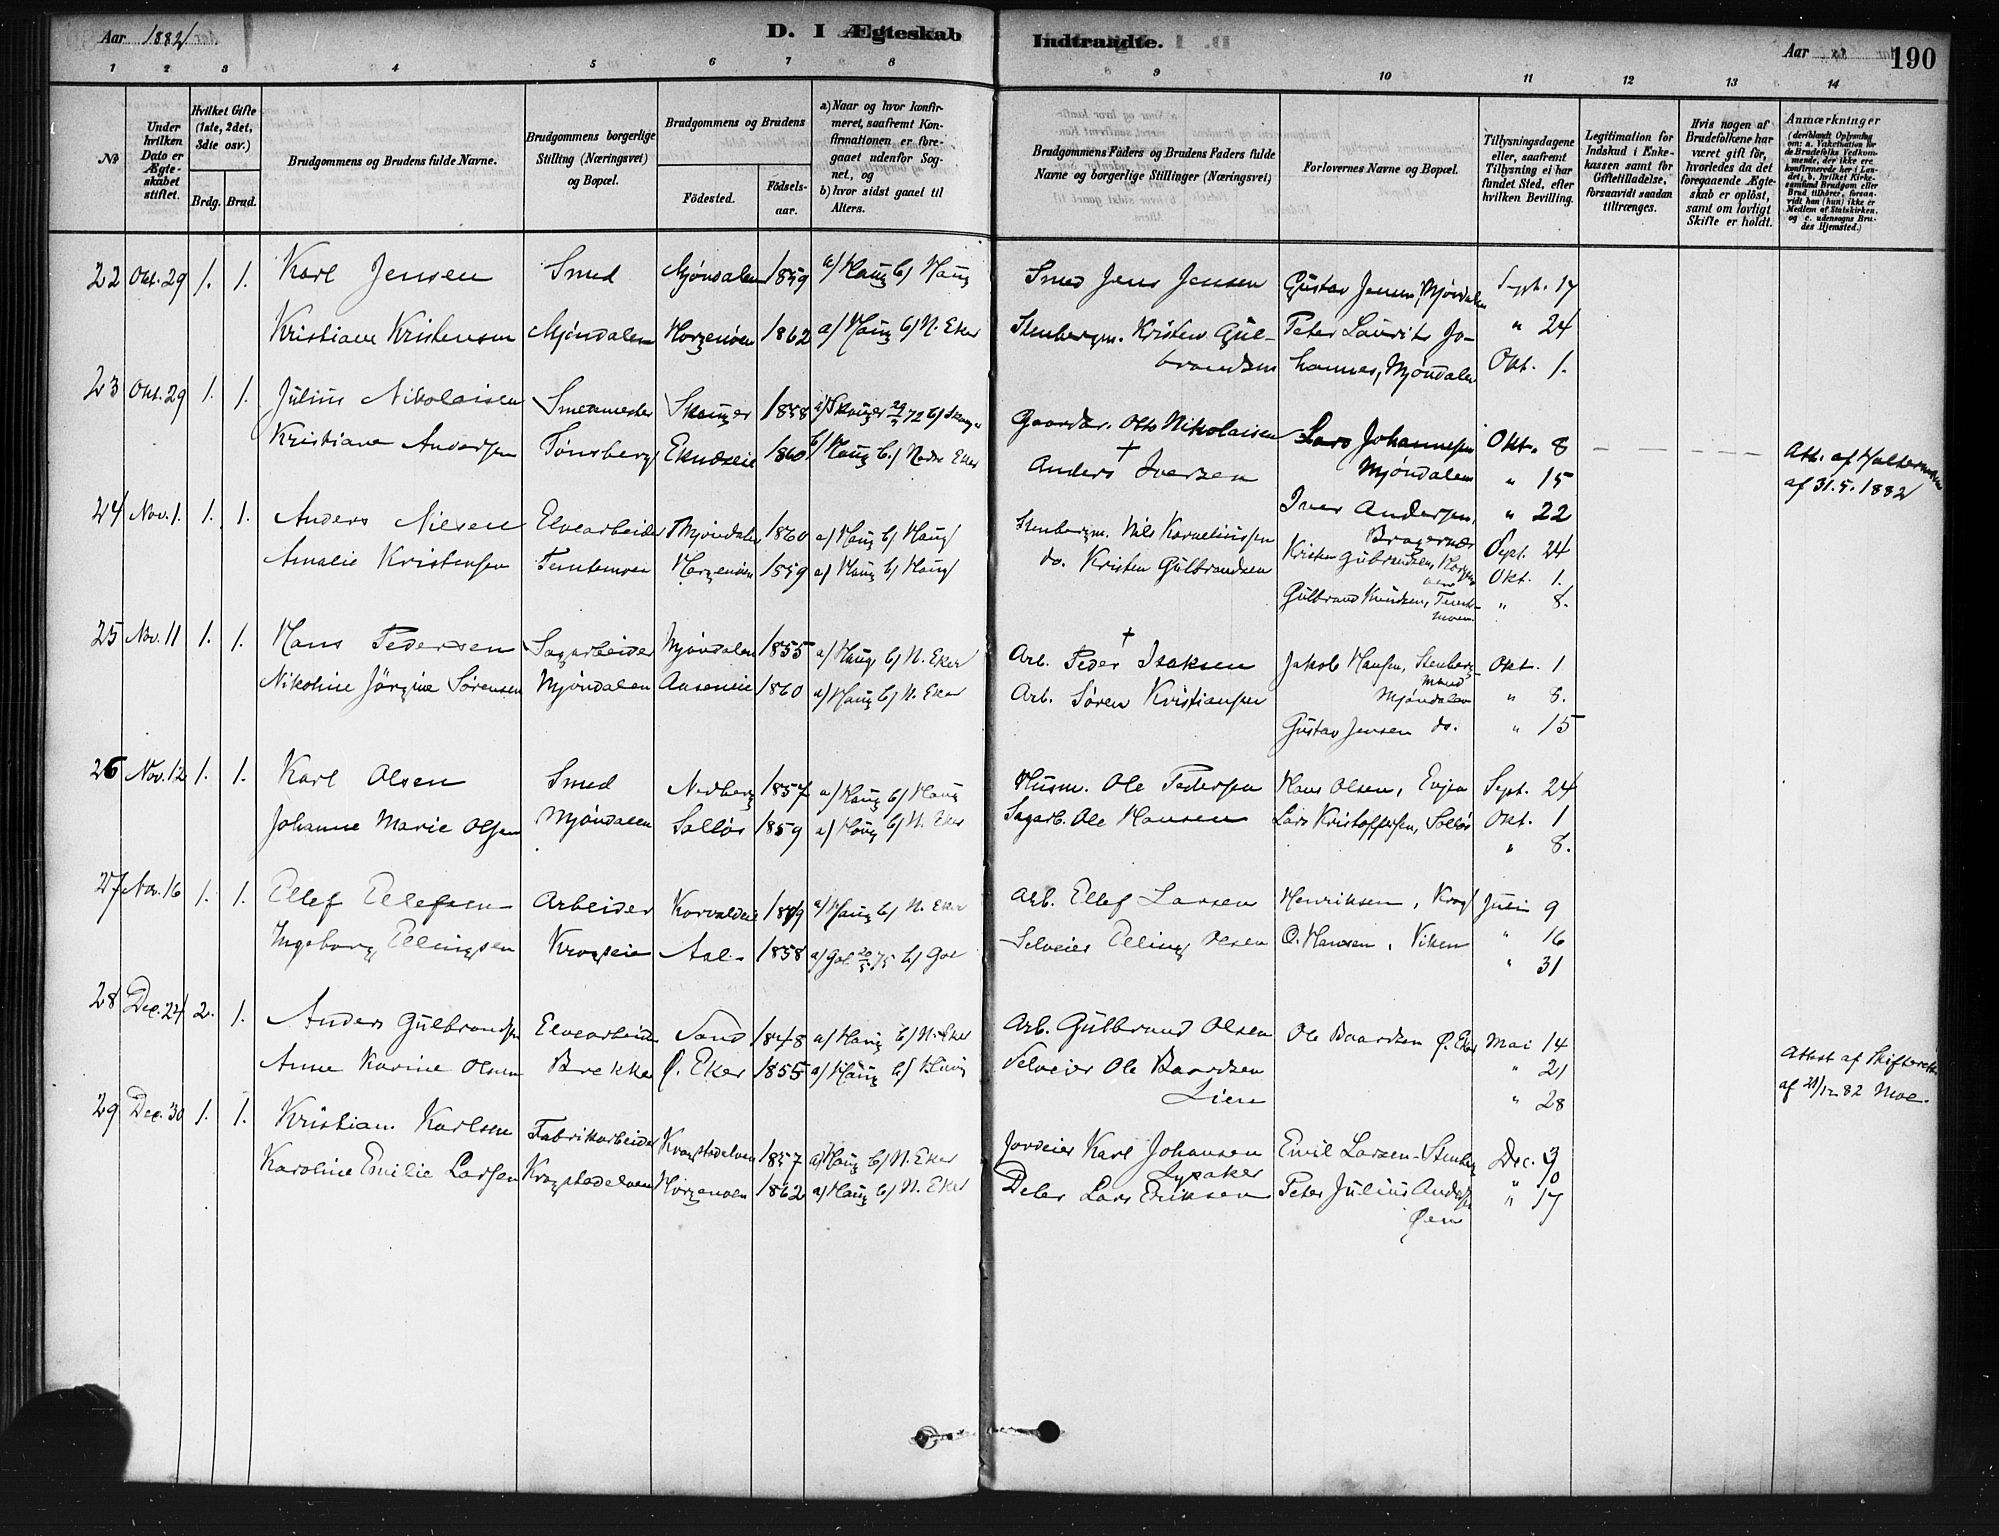 Aar 1882
D. I Ægteskab
Indtraadte.
Aar
190
1 2 3 4 5 6 7 8 9 10 11 12 13 14
№
Under hvilken Dato er Ægteskabet stiftet.
Hvilket Gifte (1ste, 2det, 3die osv.)
Brdg. Brud.
Brudgommens og Brudens fulde Navne.
Brudgommens borgerlige Stilling (Næringsvei) og Bopæl.
Brudgommens og Brudens
Fødested.
Fødselsaar.
a) Naar og hvor konfirmeret, saafremt Konfirmationen er foregaaet udenfor Sognet, og
b) hvor sidst gaaet til Alters.
Brudgommens Faders og Brudens Faders fulde Navne og borgerlige Stillinger (Næringsvei)
Forlovernes Navne og Bopæl.
Tillysningsdagene eller, saafremt Tillysning ei har fundet Sted, efter hvilken Bevilling.
Legitimation for Indskud i Enkekassen samt for Giftetilladelse, forsaavidt saadan tiltrænges.
Hvis nogen af Brudefolkene har været gift før, hvorledes da det foregaaende Ægteskab er opløst, samt om lovligt Skifte er holdt.
Anmærkninger
22 Okt. 29 1. 1. Karl Jensen Smed Mjøndalen 1859 a/ Haug b/ Haug Smed Jens Jensen Gustav Jensen, Mjøndalen Sept. 17
Kristiane Kristensen Mjøndalen Horgenøen 1862 a/ Haug b/ N. Eker Stenbergm. Kristen Gul- Peter Laurits Jo- " 24
brandsen hannes, Mjøndalen Okt. 1.
23 Okt. 29 1. 1. Julius Nikolaisen Smedmester Skouger 1858 a/ Skouger 29 72 b/ Gaardbr. Otto Nikolaisen Lars Johannesen Okt. 8
Kristiane Andersen Tønsberg Eknæseie 1860 b/ Haug b/ Nedre Eker Anders † Iversen Mjøndalen " 15 Att. af
Iver Andersen, " 22 af 31.5.1882
Bragernæs
24 Nov. 1. 1. 1. Anders Nilsen Elvearbeider Mjøndalen 1860 a/ Haug b/ Haug Stenbergm. Nils Korneliussen Kristen Gulbrandsen, Horgen- Sept. 24
Amalie Kristensen Temtemoen Horgenøen 1859 a/ Haug b/ Haug do. Kristen Gulbrandsen øen Okt. 1.
Gulbrand Knudsen, Temte- " 8.
moen
25 Nov. 11 1. 1. Hans Pedersen Sagarbeider Mjøndalen 1855 a/ Haug b/ N. Eker Arb. Peder † Isaksen Jakob Hansen, Stenberg- Okt. 1
Nikoline Jörgine Sørensen Mjøndalen Aaseneie 1860 a/ Haug b/ N. Eker Arb. Søren Kristiansen mand Mjøndalen " 8.
Gustav Jensen do. " 15
26 Nov. 12 1. 1. Karl Olsen Smed Nedberg 1857 a/ Haug b/ Haug Husm. Ole Pedersen Hans Olsen, Evjen Sept. 24
Johanne Marie Olsen Mjøndalen Solløs 1859 a/ Haug b/ N. Eker Sagarb. Ole Hansen Lars Kristoffersen, Solløs Okt. 1
" 8.
27 Nov. 16 1. 1. Ellef Ellefsen Arbeider Korvalden a/ Haug b/ N. Eker Arb. Ellef Larsen Henriksen, Krog Juli 9
Ingeborg Ellingsen Krogseie Aal 1858 a/ Gol 20/5 75 b/ Gol Selveier Elling Olsen O. Hansen, Viken " 16
" 31
28 Dec. 24 2. 1. Anders Gulbrandsen Elvearbeider Sand 1848 a/ Haug b/ N. Eker Arb. Gulbrand Olsen Ole Baardsen Ø. Eker Mai 14
Anne Karine Olsen Brekke Ø. Eker 1855 a/ Haug b/ Haug Selveier Ole Baardsen " 21 Attest af Skifteretten
Lien " 28 af 21/12 82 Moe.
29 Dec. 30 1. 1. Kristian Karlsen Fabrikarbeider Krogstadelven 1857 a/ Haug b/ N. Eker Jordeier Karl Johansen Emil Larsen Dec. 3
Lysaker " 10
Karoline Emilie Larsen Krogstadelven Horgenøen 1862 a/ Haug b/ N. Eker Deler Lars Eriksen Peter Julius Andersen " 17
Øen